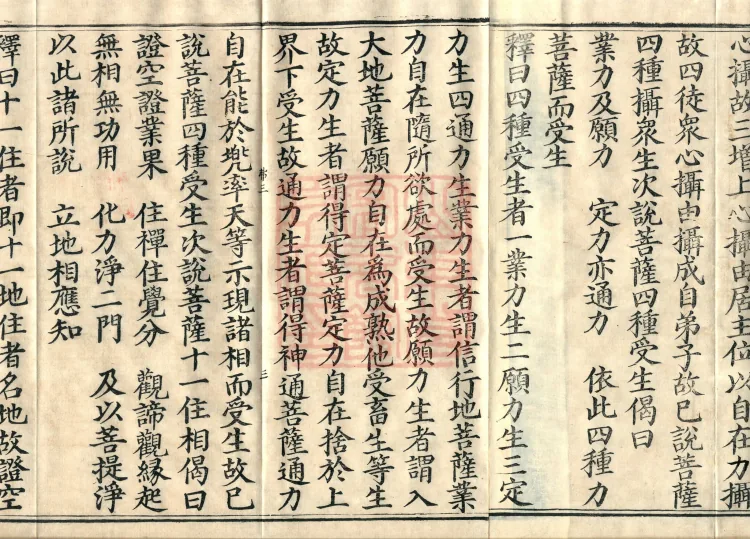 心攝故三增上心攝由居主位以自在力攝
故四徒衆心攝由攝成自弟子故已說菩薩
四種攝衆生次說菩薩四種受生偈曰
業力及願力　定力亦通力　依此四種力
菩薩而受生
釋曰四種受生者一業力生二願力生三定
力生四通力生業力生者謂信行地菩薩業
力自在隨所欲處而受生故願力生者謂入
大地菩薩願力自在爲成熟他受畜生等生
故定力生者謂得定菩薩定力自在捨於上
界下受生故通力生者謂得神通菩薩通力
三　三
自在能於兠率天等示現諸相而受生故已
說菩薩四種受生次說菩薩十一住相偈曰
證空證業果　住禪住覺分　觀諦觀縁起
無相無功用　化力淨二門　及以菩提淨
以此諸所說　立地相應知
釋曰十一住者即十一地住者名地故證空